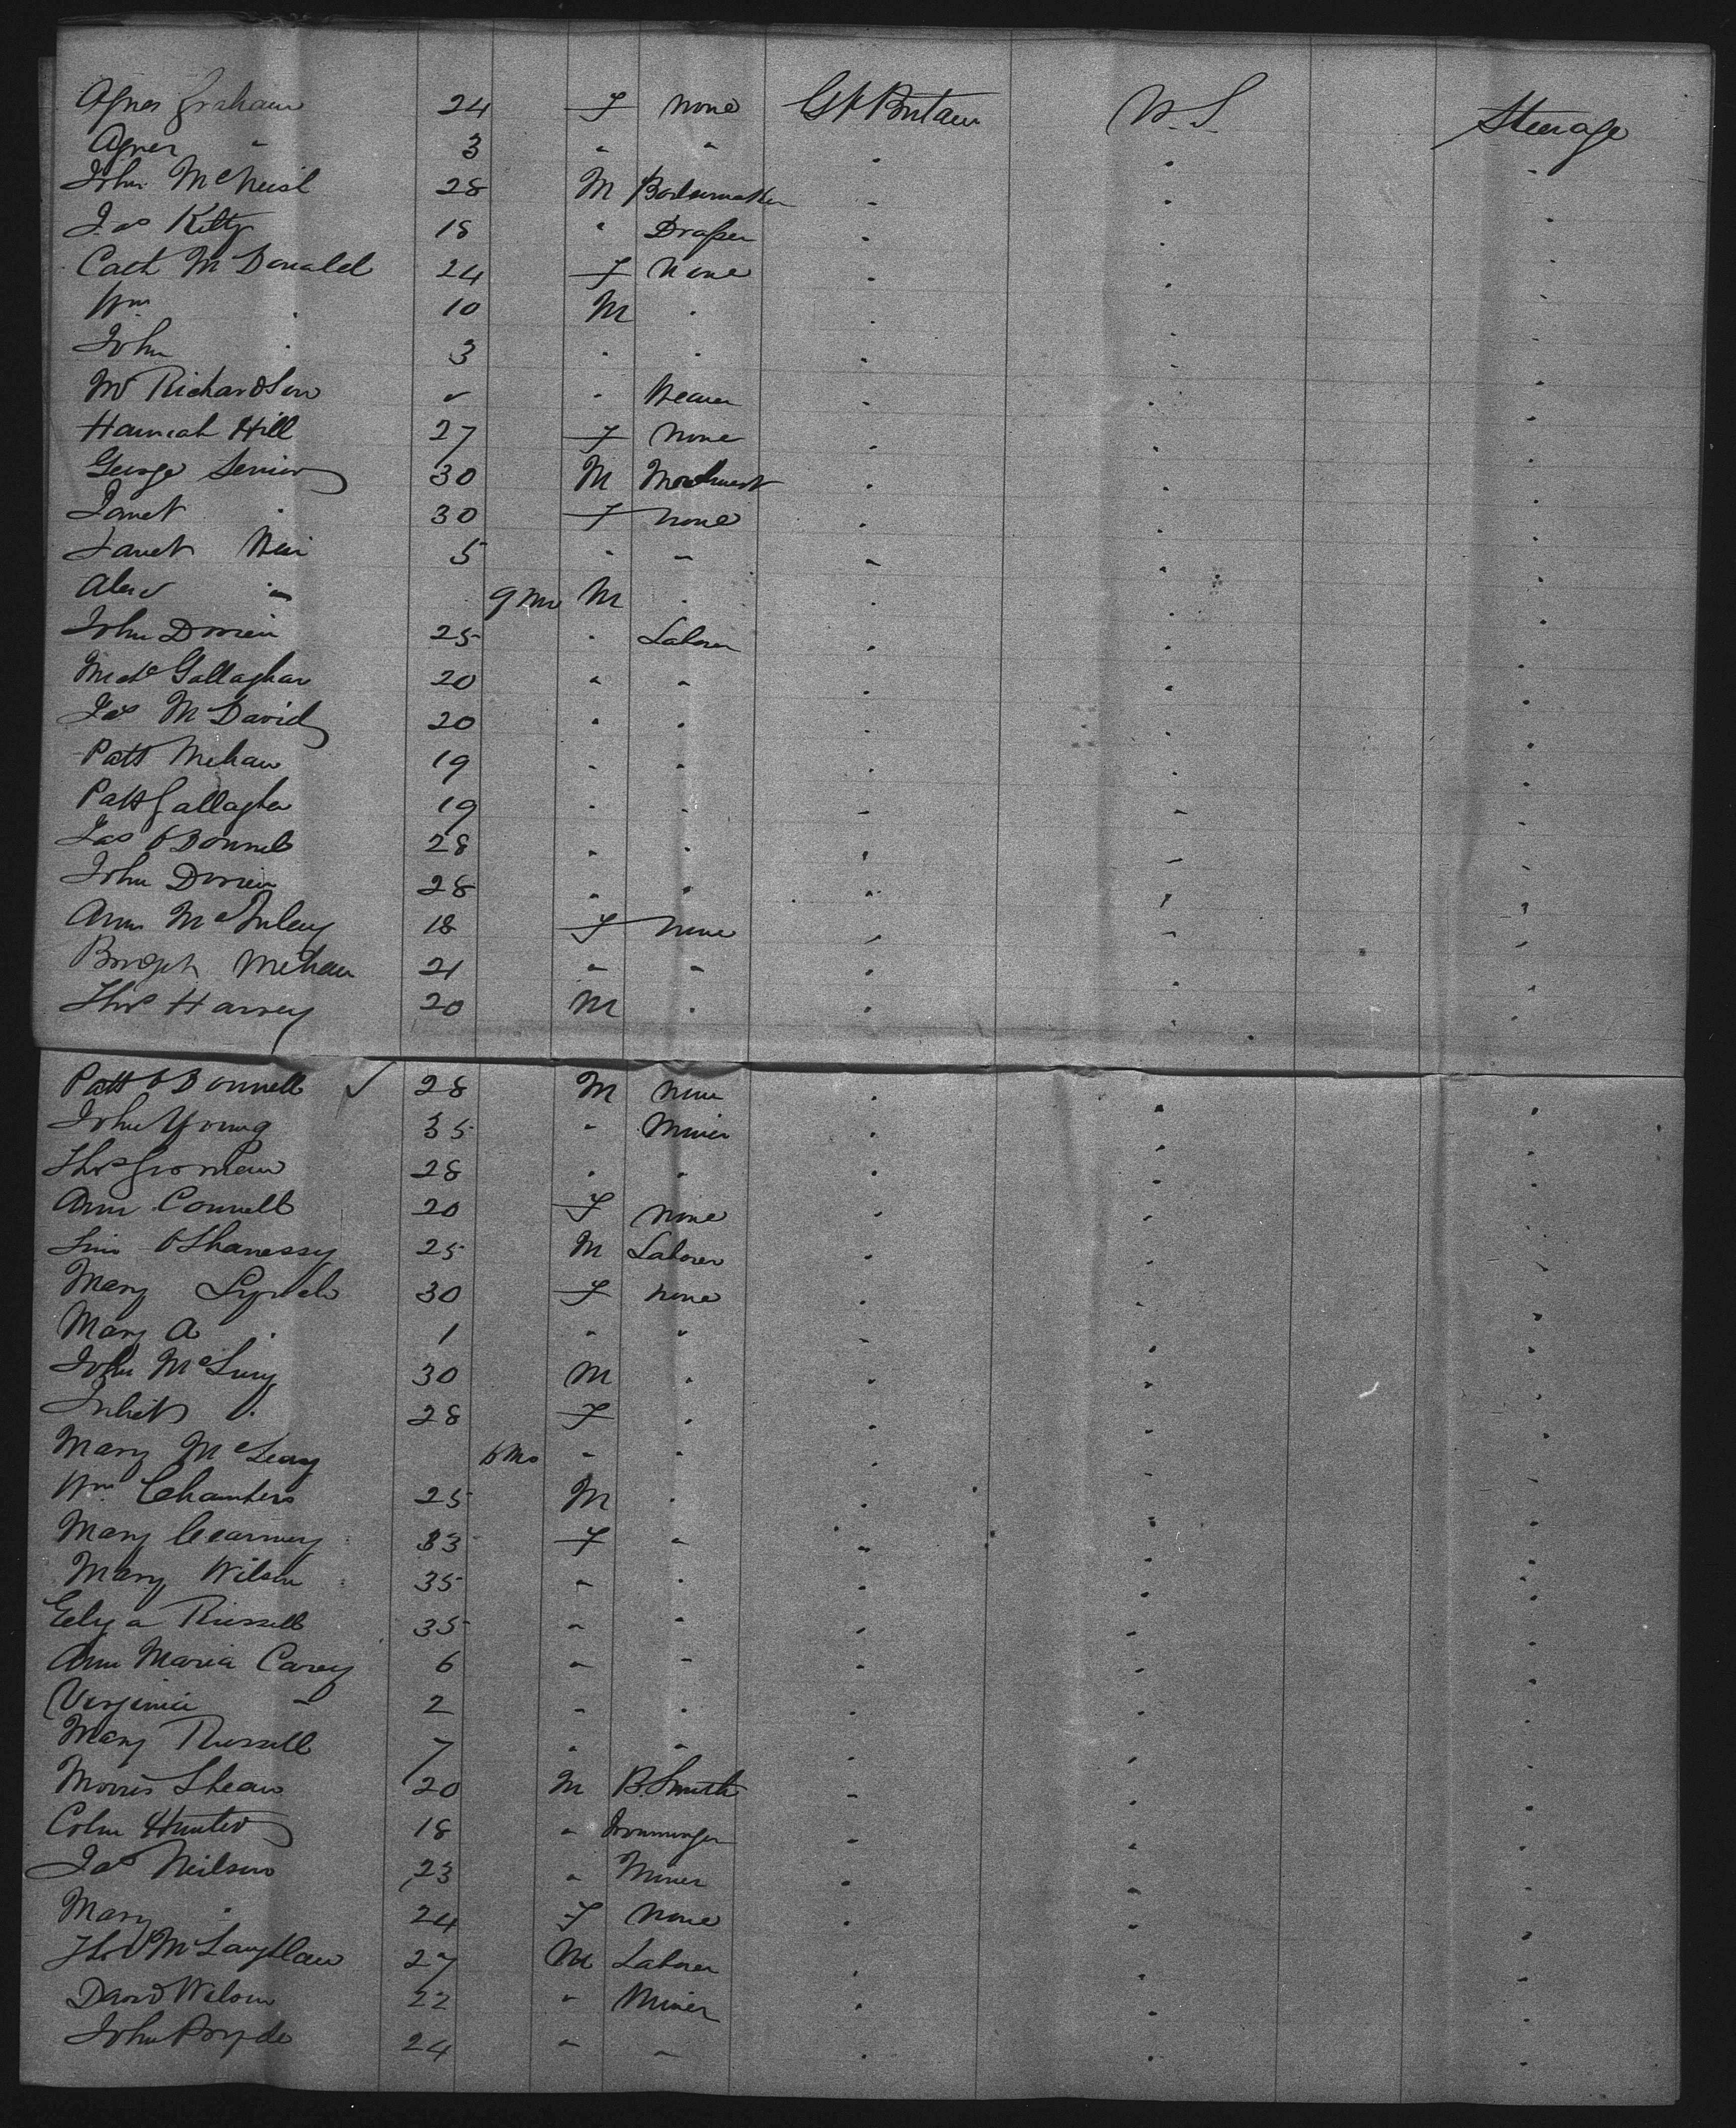 Agnes Graham 24 F None Gt Britain U.S. Steerage
Agnes " 3 " " " " "
John McNeist 28 M Boilermaker " " "
Jas Kilty 18 " Draper " " "
Cath McDonald 24 F None " " "
Wm " 10 M " " " "
John " 3 " " " " "
Richardson " " " "
Hannah Hill 27 F None " " "
George Senior 30 M " " "
Janet " 30 F None " " "
Janet Weir 5 " " " " "
Alexr " 9 Mo M " " " "
John Dorrien 25 " Laborer " " "
Michl Gallaghar 20 " " " " "
Jas McDavid 20 " " " " "
Patt Mehan 19 " " " " "
Patt Gallagher 19 " " " " "
Jas O'Donnell 28 " " " " "
John Dorrien 28 " " " " "
Ann McGinley 18 F None " " "
Bridget Mehan 21 " " " " "
Thos Harvey 20 M " " " "
Patt O'Donnell ✓ 28 M None " " "
John Young 35 " Miner " " "
Thos 28 " " " " "
Ann Connell 20 F None " " "
OShanessy 25 M Laborer " " "
Mary Lynch 30 F None " " "
Mary A " 1 " " " " "
John 30 M " " " "
" 28 F " " " "
Mary McLeay 6 Mo " " " " "
Wm Chambers 25 M " " " "
Mary Kearney 33 F " " " "
Mary Wilson 35 " " " " "
Eliza Russell 35 " " " " "
Ann Maria Carey 6 " " " " "
Virginia " 2 " " " " "
Mary Russell 7 " " " " "
Morris Shean 20 M B. Smith " " "
Colin Hunter 18 " Ironmonger " " "
Jas Neilson 23 " Miner " " "
Mary " 24 F None " " "
Thos McLaughlan 27 M Laborer " " "
David Wilson 22 " Miner " " "
John Pryde 24 " " " " "